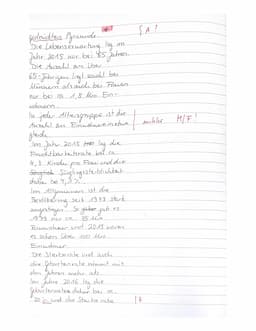 { A !
gedrückten Pyramide.
Die Lebenserwartung lag im
Jahr 2015 nur bei 65 Jahren.
Die Anzahl an über
65-Jährigen liegt sowohl bei
Männern als auch bei Frauen
nur bei ca. 1,8 Mio. Ein-
wohnern.
In jeder Altersgruppe ist die
Anzahl an Einwohnern etwa
gleich. M/F!
Im Jahr 2015 lag die
Fruchtbarkeitsrate bei ca.
4,3 Kinder pro Frau und die
Säuglingssterblichkeit
dabei bei %.
Im Allgemeinen ist die
Bevölkerung seit 1993 stark
angestiegen. So gab es
1993 nur ca. Mio.
Einwohner und 2015 waren
es schon über 100 Mio.
Einwohner.
Die Sterberate und auch
die Geburtenrate nimmt mit
den Jahren mehr ab.
Im Jahre 2016 lag die
Geburtenrate daher bei ca.
und die Sterberate